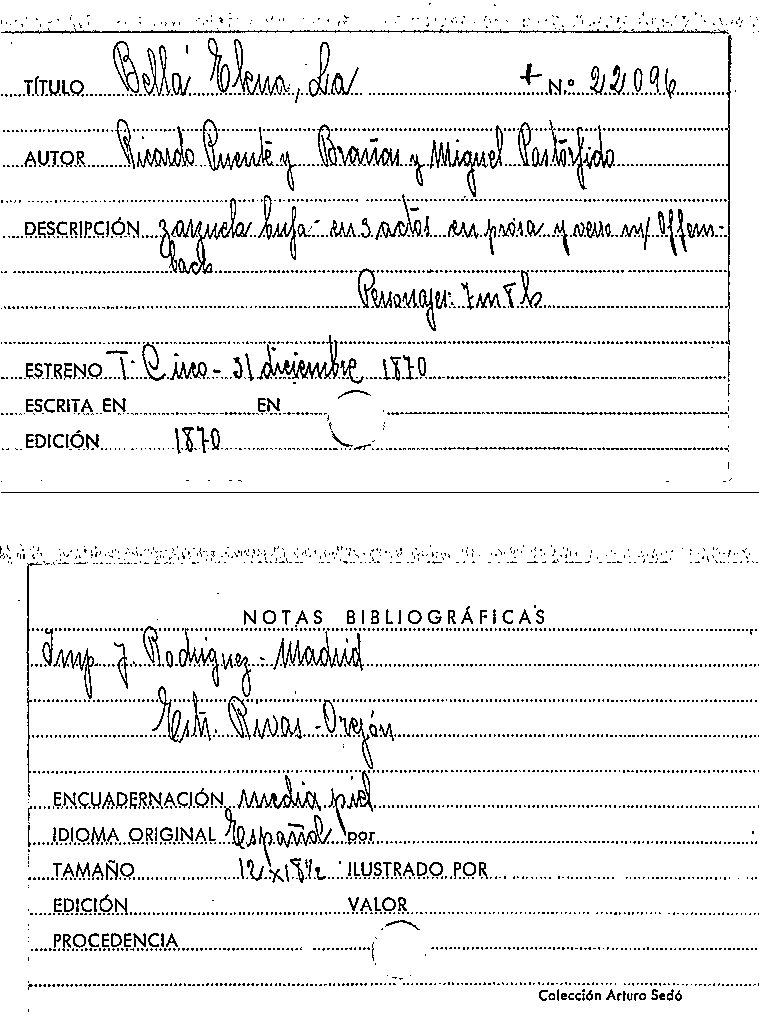 TÍTULO Bella Elena, La + N.º 22096
AUTOR Ricardo Puente y Brañas y Miguel Pastorfido
DESCRIPCIÓN zarzuela bufa - en 3 actos en prosa y verso m/ Offem-
bach
Personajes: 7m 8h
ESTRENO T. Circo - 31 diciembre 1870
ESCRITA EN EN
EDICIÓN 1870
NOTAS BIBLIOGRÁFICAS
Imp J. Rodriguez - Madrid
Estr. Rivas - Orejón
ENCUADERNACIÓN media piel
IDIOMA ORIGINAL Español por
TAMAÑO 12 x 18 1/2 ILUSTRADO POR
EDICIÓN VALOR
PROCEDENCIA
Colección Arturo Sedó